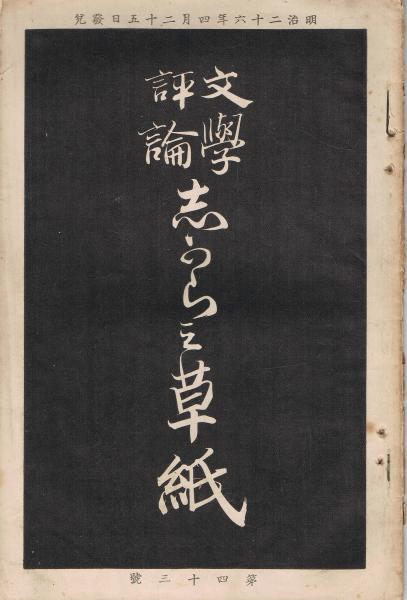 明治二十六年四月二十五日發兌
文學
評論
志からみ草紙
第四十三號